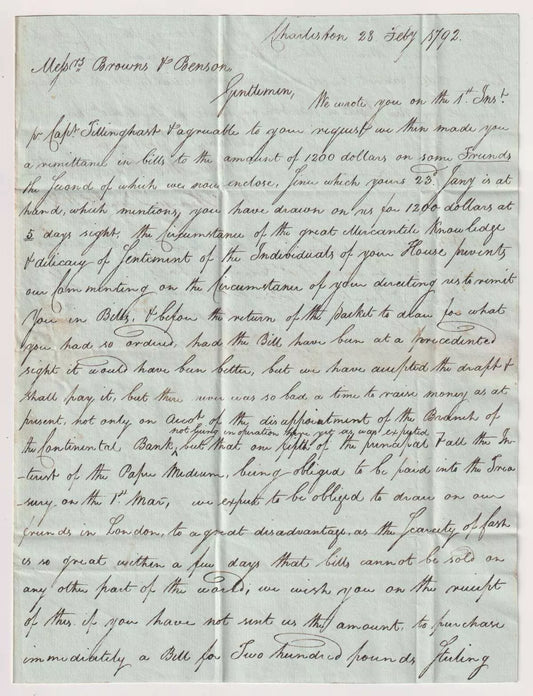 Charleston 28 Feby 1792.
Messrs Browns & Benson,
Gentlemen,
We wrote you on the 1st Inst.
p Capt Tillinghast & agreeable to your request we then made you
a remittance in bills to the amount of 1200 dollars on some Friends
the Second of which we now enclose, Since which yours 23d Jany is at
hand, which mentions, you have drawn on us for 1200 dollars at
5 days sight, the Circumstance of the great Mercantile Knowledge
& delicacy of Sentiment of the Individuals of your House prevents
our Commenting on the Circumstance of your directing us to remit
you in Bills, & before the return of the packet to draw for what
you had so ordered, had the Bill have been at a precedented
sight it would have been better, but we have accepted the draft &
shall pay it, but there never was so bad a time to raise money as at
present, not only on Accot of the disappointment of the Branch of
not being in operation here yet as was expected
the Continental Bank, but that one fifth of the principal & all the In-
terest of the Paper Medium, being obliged to be paid into the Trea
sury on the 1st Mar, we expect to be obliged to draw on our
friends in London, to a great disadvantage, as the Scarcity of Cash
is so great within a few days that bills cannot be sold on
any other part of the world, we wish you on the receipt
of this if you have not sent us the amount, to purchase
immediately a Bill for Two hundred pounds Sterling